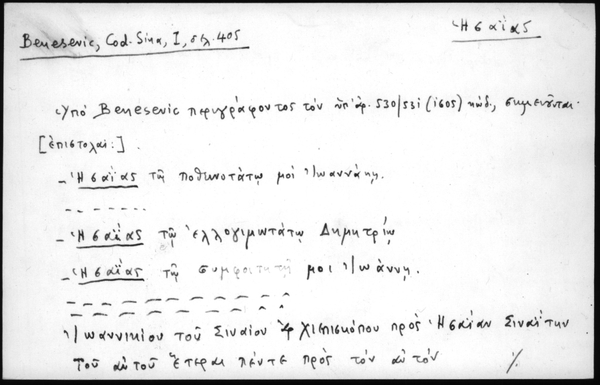 Ἡσαΐας
Benesevic, Cod. Sina, I, σελ. 405
Ὑπὸ Benesevic περιγράφοντος τὸν ὑπ' ἀρ. 530/531 (1605) κώδ., σημειοῦνται
[ἐπιστολαί:]
- Ἡσαΐας τῷ ποθεινοτάτῳ μοι Ἰωαννάκῃ.
- - - - - - -
- Ἡσαΐας τῷ ἐλλογιμωτάτῳ Δημητρίῳ
- Ἡσαΐας τῷ συμφοιτητῇ μοι Ἰωάννῃ.
Ἰωαννικίου τοῦ Σιναίου ἀρχιεπισκόπου πρὸς Ἡσαΐαν Σιναΐτην
Τοῦ αὐτοῦ ἕτεραι πέντε πρὸς τὸν αὐτόν ./.